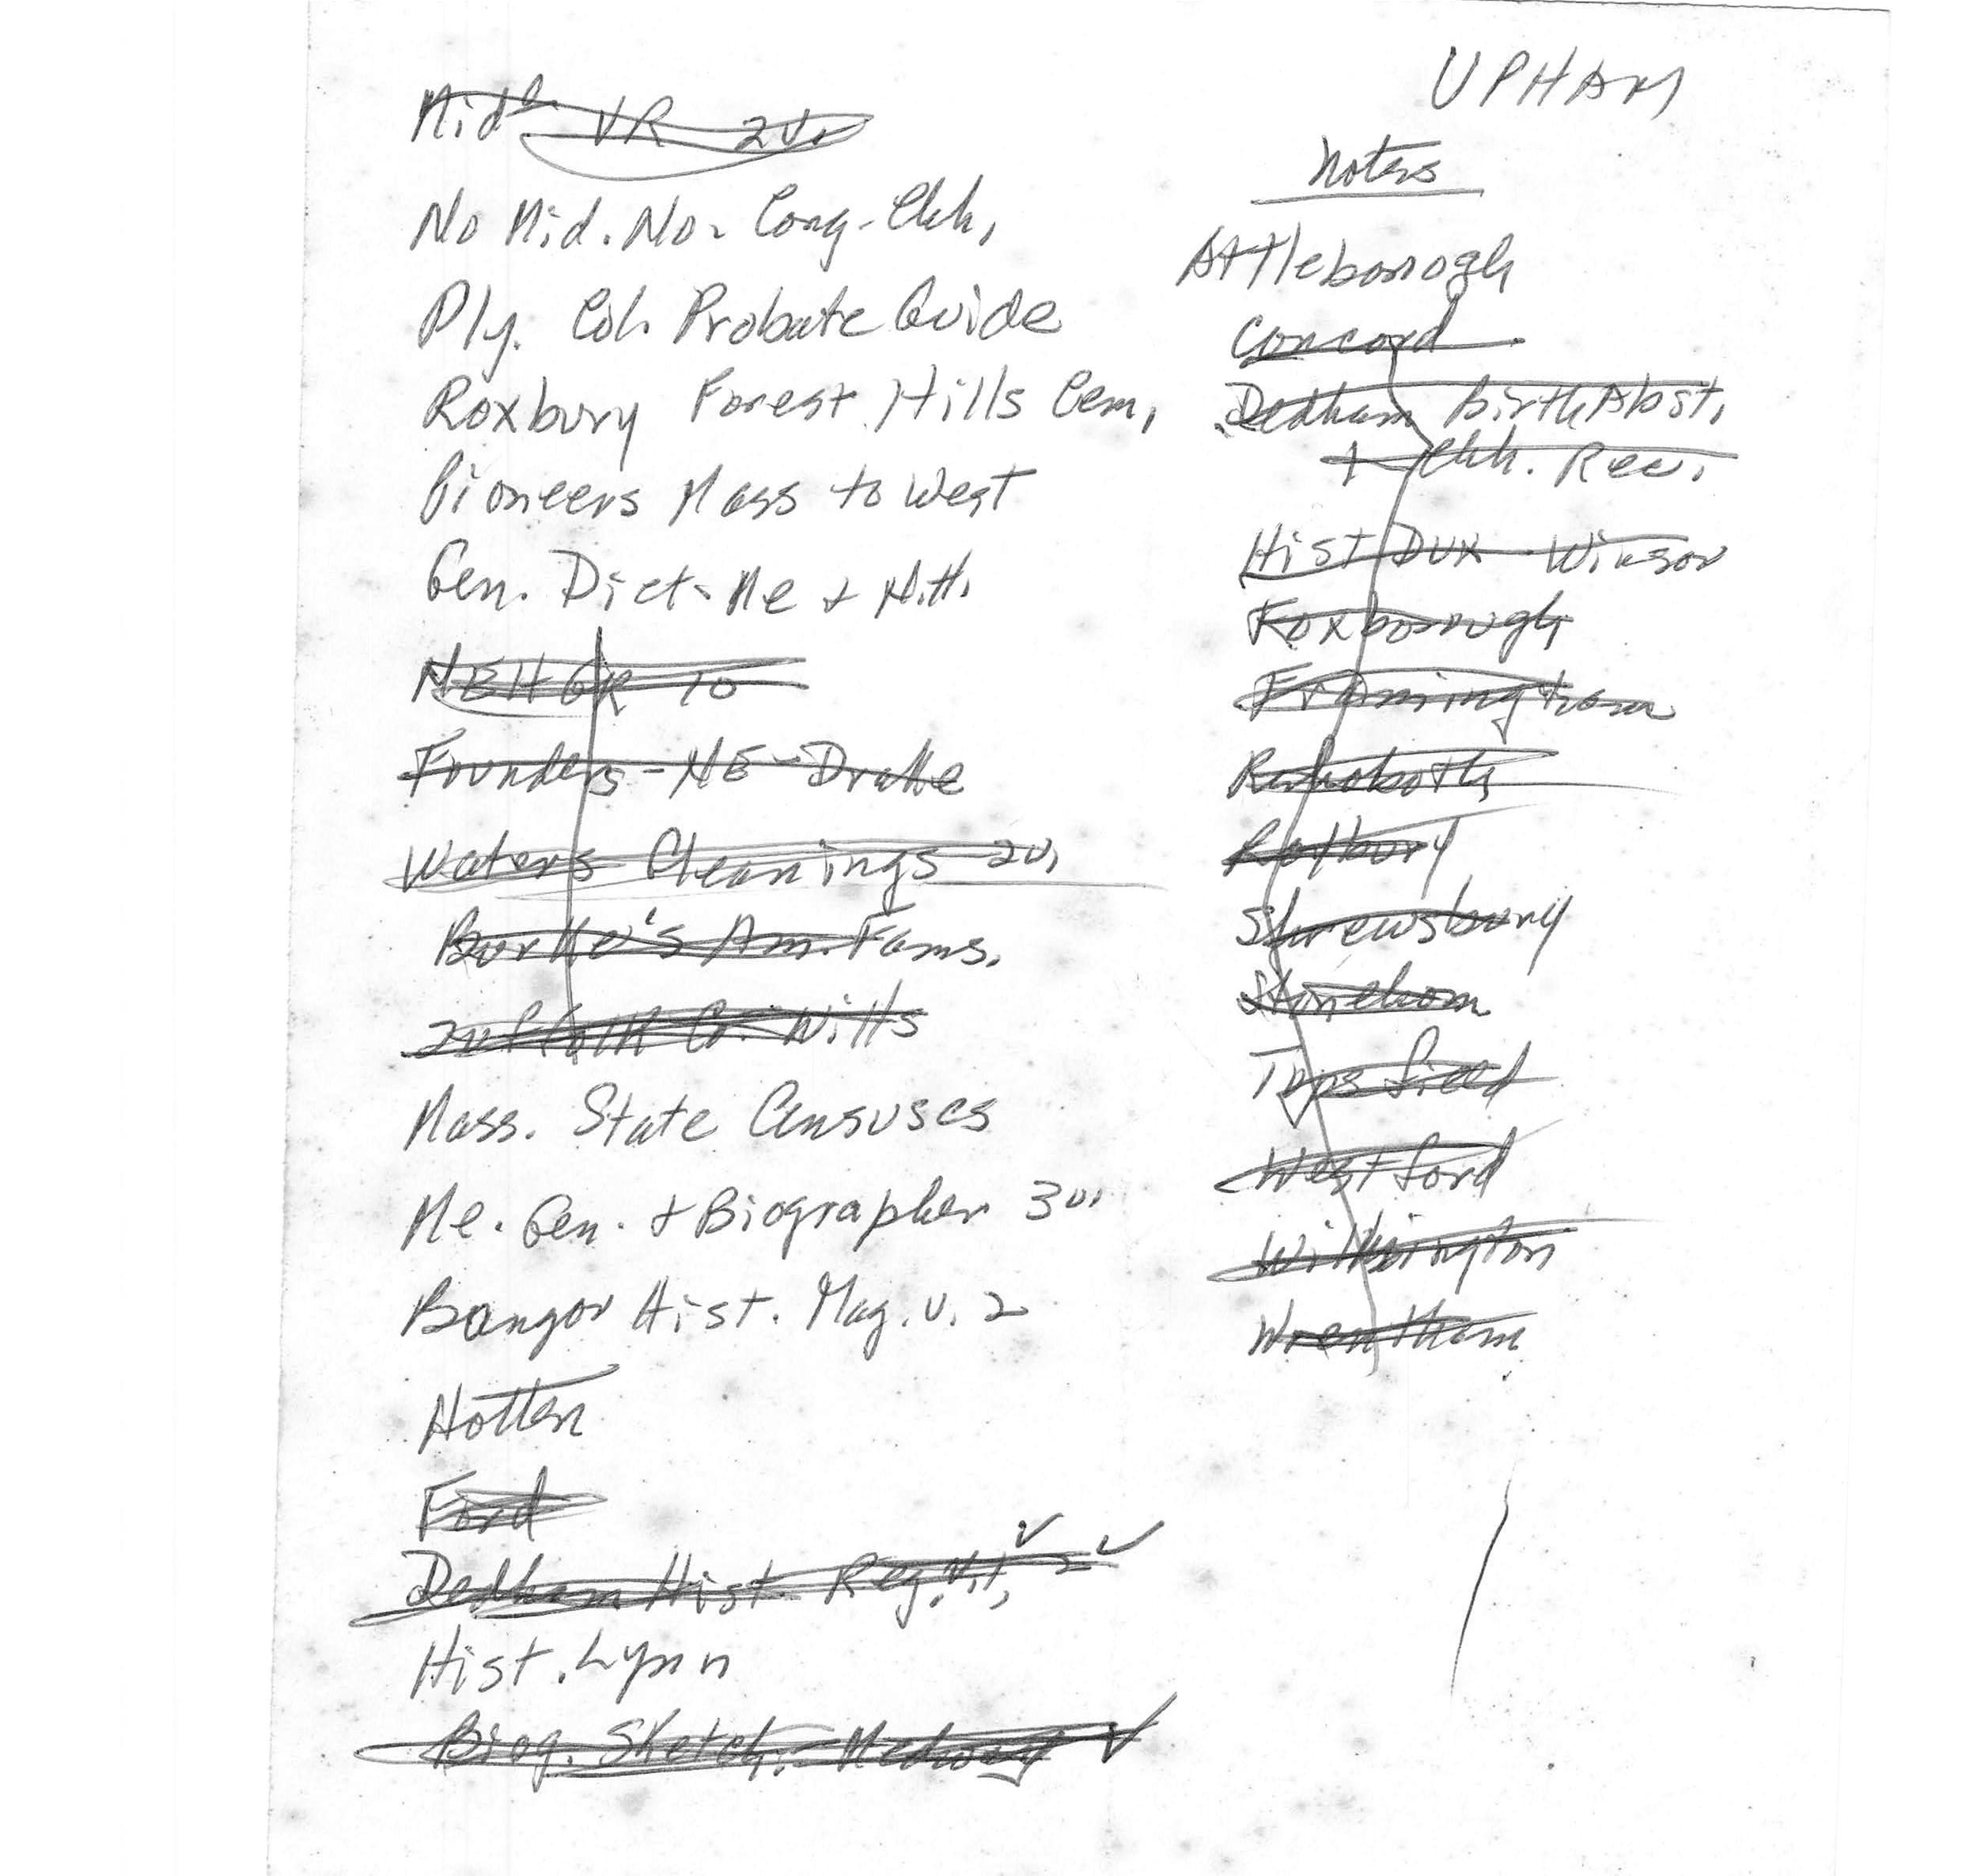 UPHAM
Notes
Mid. VR 2v.
No Mid. No. Cong. Chh.
Ply. Col. Probate Guide
Roxbury Forest Hills Cem.
Pioneers Mass to West
Gen. Dict. Me + N.H.
NEHGR 10
Founders - NE - Drake
Waters Gleanings 2v.
Burke's Am. Fams.
Suffolk Co. Wills
Mass. State Censuses
Me. Gen. + Biographer 3v.
Bangor Hist. Mag. v. 2
Hotten
Ford
Dedham Hist. Reg. V. 1, 2
Hist. Lynn
Biog. Sketch. - Medway
Attleborough
Concord
Dedham Birth Abst.
+ Chh. Rec.
Hist Dux - Winsor
Foxborough
Framingham
Rehoboth
Shrewsbury
Stoneham
Topsfield
Westford
Wilmington
Wrentham